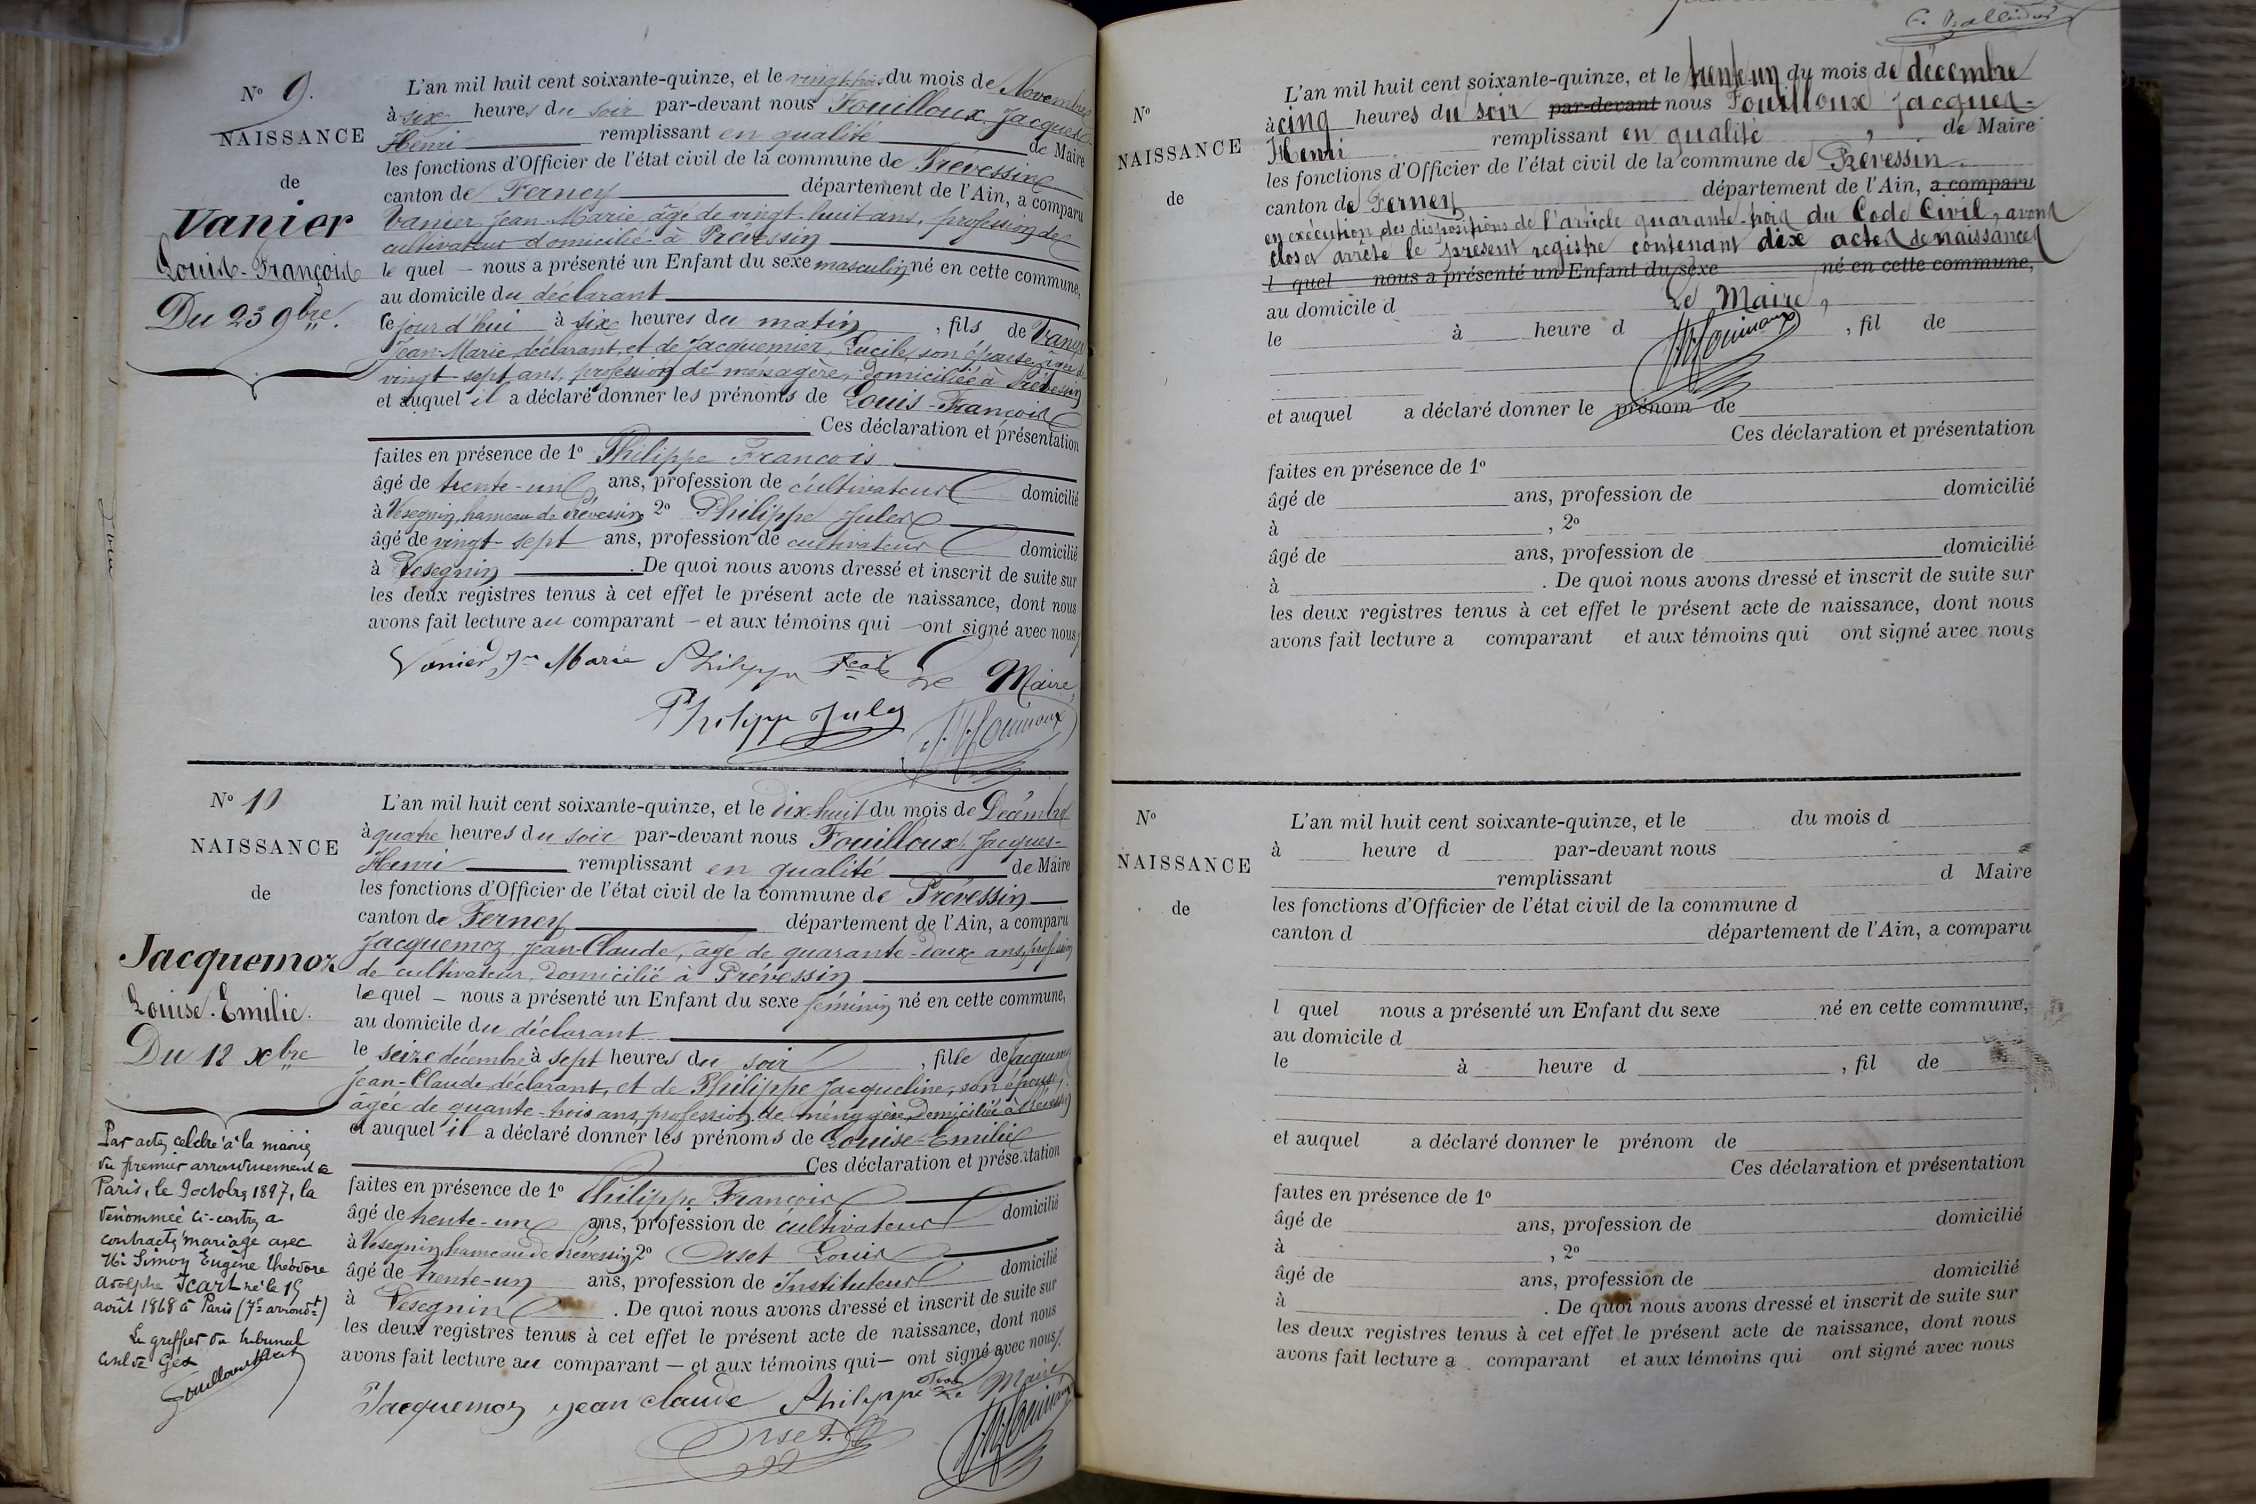 N° 9.
NAISSANCE
de
Vanier
Louis-François
Du 23 9bre.
L'an mil huit cent soixante-quinze, et le vingt-trois du mois de Novembre
à six heures du soir par-devant nous Fouilloux Jacques-
Henri remplissant en qualité de Maire
les fonctions d'Officier de l'état civil de la commune de Prévessin
canton de Ferney département de l'Ain, a comparu
Vanier Jean-Marie âgé de vingt-huit ans, profession de
cultivateur domicilié à Prévessin
le quel – nous a présenté un Enfant du sexe masculin né en cette commune,
au domicile du déclarant
le jour d'hui à six heures du matin, fils de Vanier
Jean-Marie, déclarant, et de Jacquemier, Lucile, son épouse, âgée de
vingt sept ans, profession de ménagère, domiciliée à Prévessin
et auquel il a déclaré donner les prénoms de Louis-François
Ces déclaration et présentation
faites en présence de 1° Philippe François
âgé de trente-un ans, profession de cultivateur domicilié
à Vesegnin, hameau de Prévessin 2° Philippe Jules
âgé de vingt-sept ans, profession de cultivateur domicilié
à Vesegnin. De quoi nous avons dressé et inscrit de suite sur
les deux registres tenus à cet effet le présent acte de naissance, dont nous
avons fait lecture au comparant – et aux témoins qui – ont signé avec nous
Vanier Jn Marie Philippe Fcois Le Maire,
Philippe Jules JHFouilloux
N° 10
NAISSANCE
de
Jacquemoz
Louise-Emilie.
Du 18 xbre
L'an mil huit cent soixante-quinze, et le dix-huit du mois de Décembre
à quatre heures du soir par-devant nous Fouilloux Jacques-
Henri remplissant en qualité de Maire
les fonctions d'Officier de l'état civil de la commune de Prévessin
canton de Ferney département de l'Ain, a comparu
Jacquemoz Jean-Claude, âgé de quarante-deux ans, profession
de cultivateur, domicilié à Prévessin
le quel – nous a présenté un Enfant du sexe féminin né en cette commune,
au domicile du déclarant
le seize décembre à sept heures du soir, fille de Jacquemoz
Jean-Claude déclarant, et de Philippe Jacqueline, son épouse,
âgée de quante-trois ans, profession de ménagère, domiciliée à Prévessin
et auquel il a déclaré donner les prénoms de Louise-Emilie
Ces déclaration et présentation
faites en présence de 1° Philippe François
âgé de trente-un ans, profession de cultivateur domicilié
à Vesegnin hameau de Prévessin 2° Orset Louis
âgé de trente-un ans, profession de Instituteur domicilié
à Vesegnin. De quoi nous avons dressé et inscrit de suite sur
les deux registres tenus à cet effet le présent acte de naissance, dont nous
avons fait lecture au comparant – et aux témoins qui – ont signé avec nous.
Jacquemoz jean claude Philippe Fcois Le Maire
Orset JHFouilloux
Par acte célébré à la mairie
du premier arrondissement de
Paris, le 9 octobre 1897, la
dénommée ci-contre a
contracté mariage avec
Mr Simon Eugène théodore
adolphe Icart né le 15
août 1868 à Paris (7e arrondt)
Le greffier du tribunal
civil de Gex
N°
NAISSANCE
de
L'an mil huit cent soixante-quinze, et le trente un du mois de décembre
à cinq heures du soir par-devant nous Fouilloux Jacques-
Henri remplissant en qualité, de Maire
les fonctions d'Officier de l'état civil de la commune de Prévessin
canton de Ferney département de l'Ain, a comparu
en exécution des dispositions de l'article quarante-trois du Code Civil, avons
clos et arrêté le présent registre contenant dix actes de naissances
l quel nous a présenté un Enfant du sexe né en cette commune,
au domicile d Le Maire,
le à heure d JHFouilloux, fil de
et auquel a déclaré donner le prénom de
Ces déclaration et présentation
faites en présence de 1°
âgé de ans, profession de domicilié
à , 2°
âgé de ans, profession de domicilié
à . De quoi nous avons dressé et inscrit de suite sur
les deux registres tenus à cet effet le présent acte de naissance, dont nous
avons fait lecture a comparant et aux témoins qui ont signé avec nous
N°
NAISSANCE
de
L'an mil huit cent soixante-quinze, et le du mois d
à heure d par-devant nous
remplissant d Maire
les fonctions d'Officier de l'état civil de la commune d
canton d département de l'Ain, a comparu
l quel nous a présenté un Enfant du sexe né en cette commune,
au domicile d
le à heure d , fil de
et auquel a déclaré donner le prénom de
Ces déclaration et présentation
faites en présence de 1°
âgé de ans, profession de domicilié
à , 2°
âgé de ans, profession de domicilié
à . De quoi nous avons dressé et inscrit de suite sur
les deux registres tenus à cet effet le présent acte de naissance, dont nous
avons fait lecture a comparant et aux témoins qui ont signé avec nous